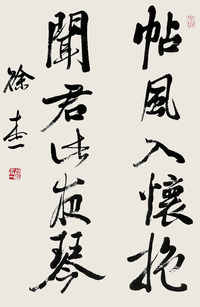 帖風入懷抱
聞君此夜琴
徐